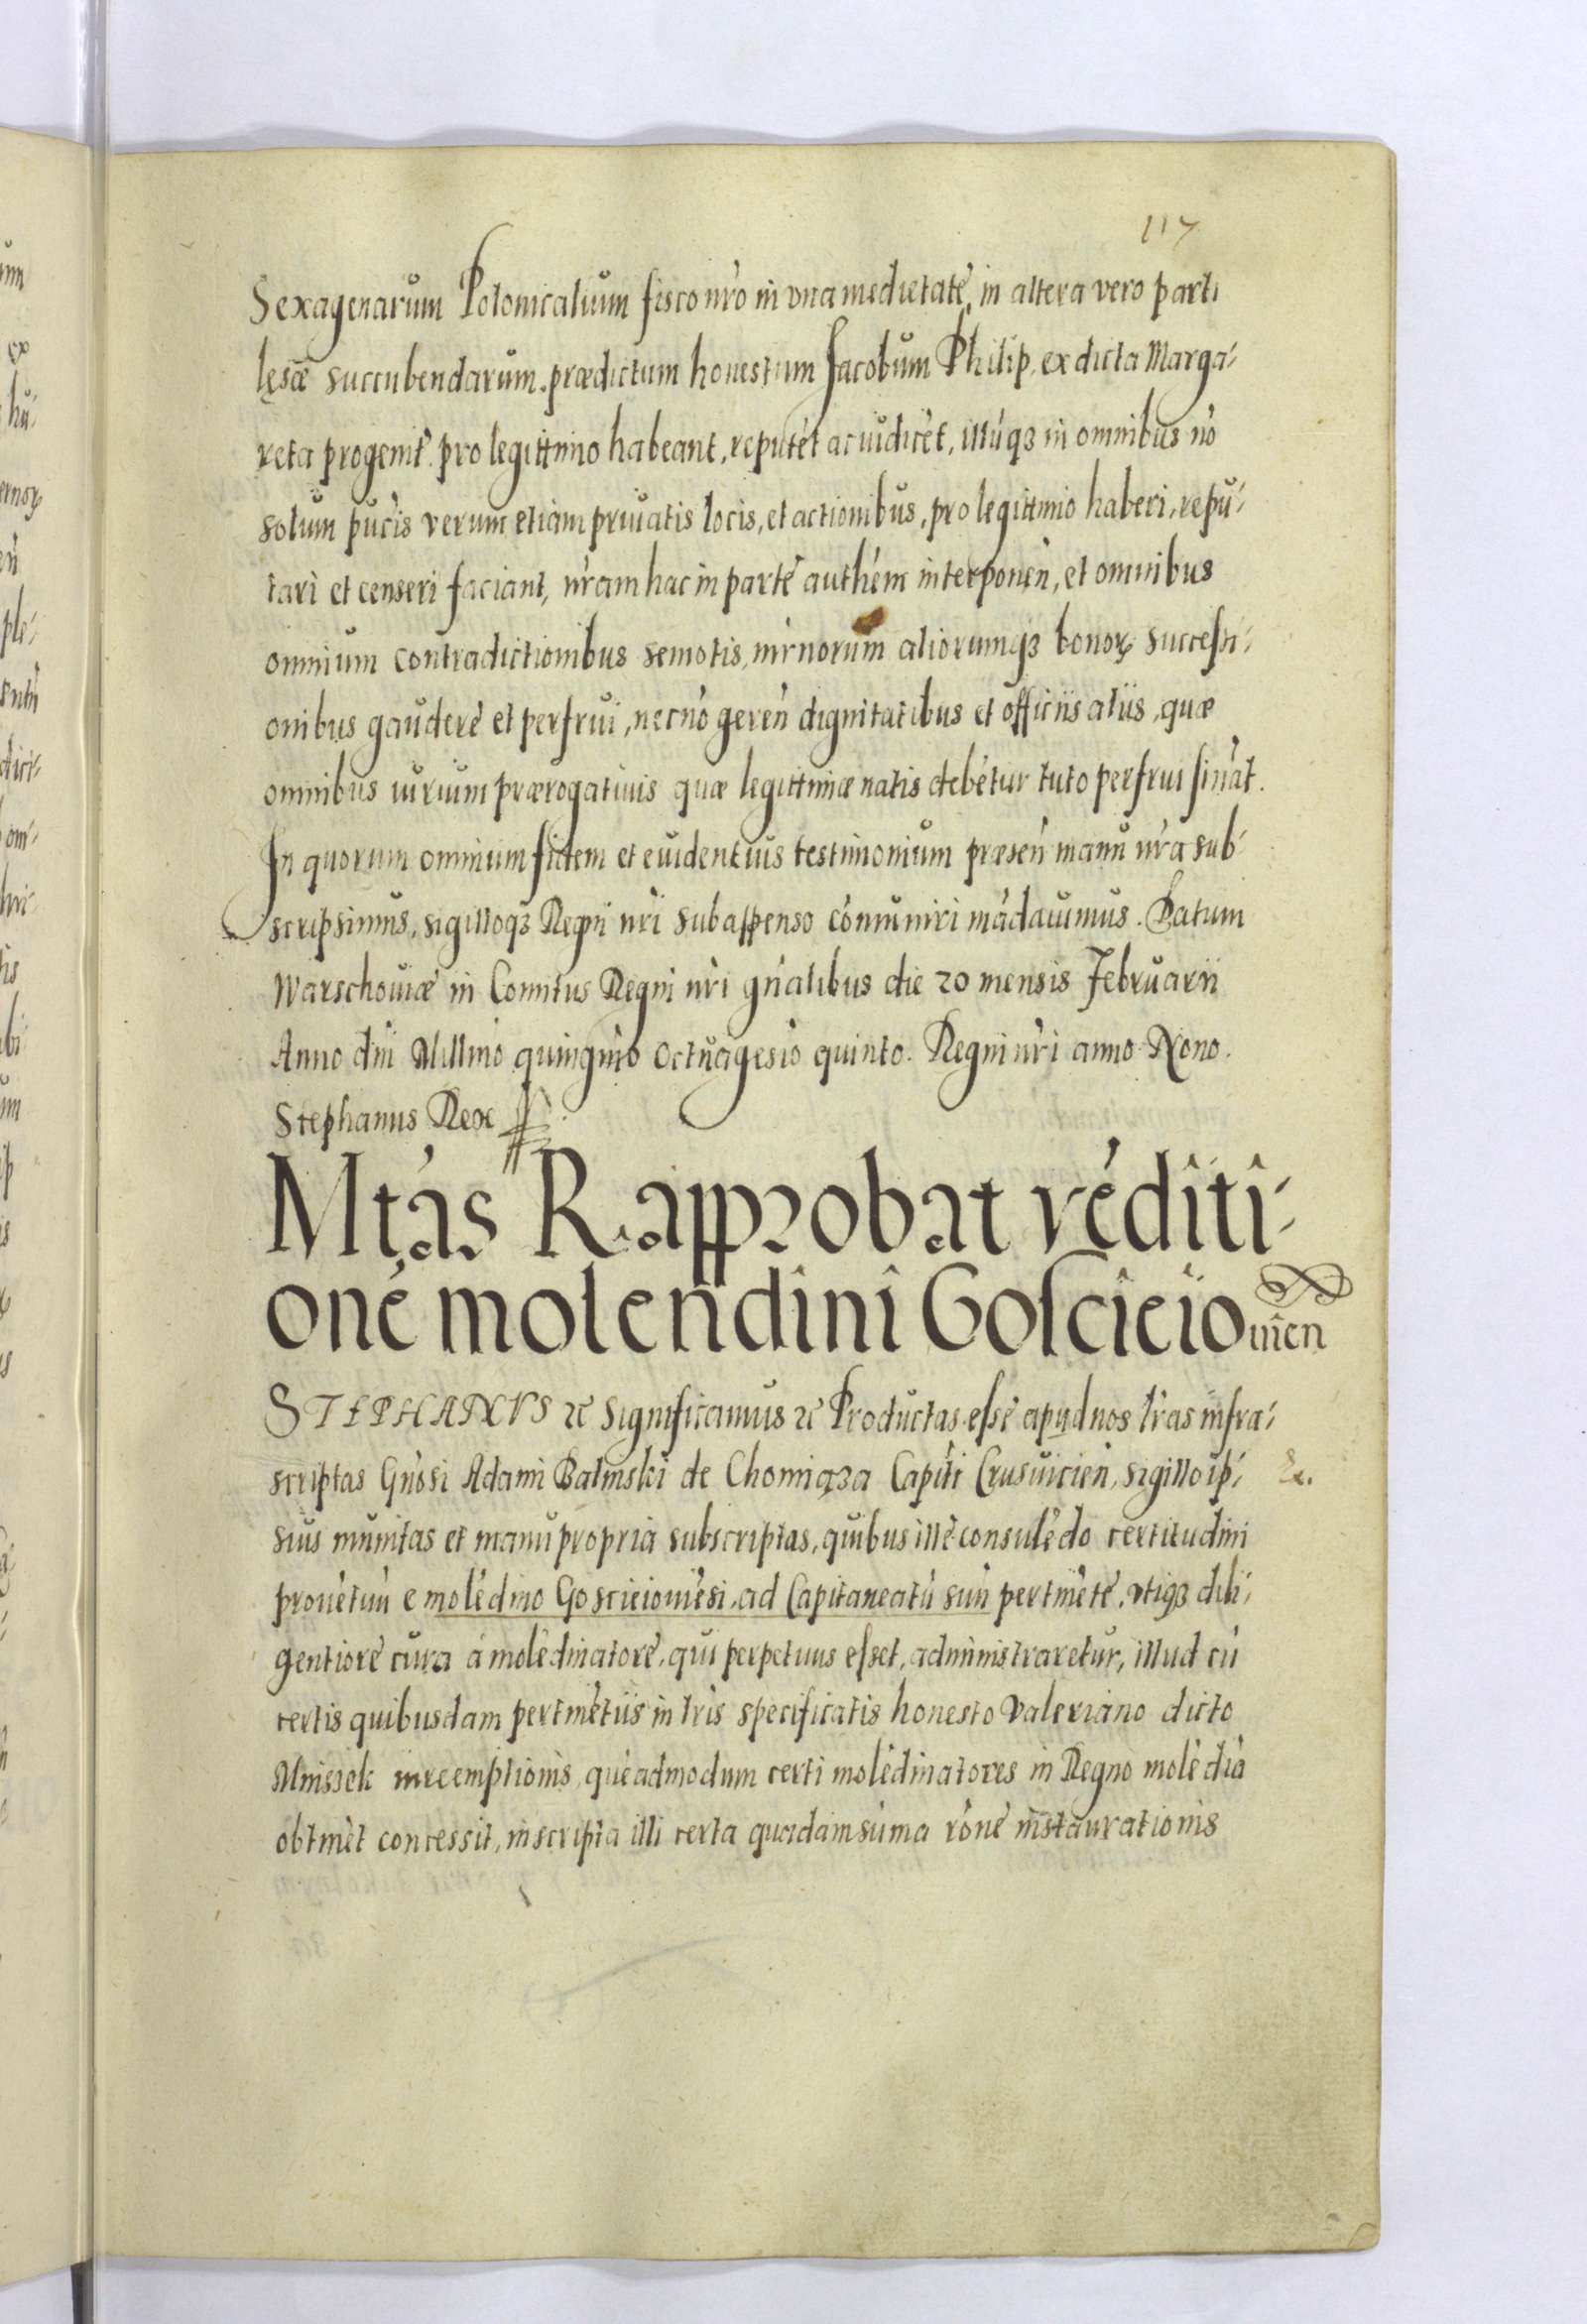 117
Sexagenarum Polonicalium fisco nr̃o in vna medietatẽ, in altera vero parti
lęsæ succubendarum. prædictum honestum Jacobum Philip. ex dicta Marga-
reta progenit̃. pro legittimo habeant, reputẽt ac iudicẽt, illũqꝫ in omnibus nõ
solum pũcis verum etiam priuatis locis, et actionibus, pro legittimo haberi, repu-
tari et censeri faciant, nr̃am hac in partẽ authẽm interponen̄, et omnibus
omnium contradictionibus semotis, mr̃norum aliorumqꝫ bonoꝝ successi-
onibus gauderẽ et perfrui, necnõ geren̄ dignitatibus et officiis aliis, quæ
omnibus iurium prærogatiuis quæ legittimæ natis debẽtur tuto perfrui sinãt.
In quorum omnium fidem et euidentius testimonium præsen̄ manu nr̃a sub-
scripsimus, sigilloqꝫ Regni nr̃i subappenso cõmuniri mãdauimus. Datum
Warschouiæ in Comitiis Regni nr̃i gñalibus die 20 mensis Februarii
Anno dñi Millmõ quingmõ octuagesiõ quinto. Regni nr̃i anno Nono.
Stephanus Rex
Mtãs R. approbat vẽditi-
onẽ molendini Goscieio
uien
STEPHANVS ꝛc Significamus ꝛc Productas esse apud nos lr̃as infra-
scriptas Gñosi Adami Balinski de Chomiąza Capitĩ Crusuicien̄, sigillo ip-
&.
sius munitas et manu propria subscriptas, quibus illẽ consulẽdo certitudini
prouẽtuũ e molẽdino Goscieiouiẽsi, ad Capitaneatũ suũ pertinẽtẽ, vtiqꝫ dili-
gentiorẽ cura á molẽdinatorẽ, qui perpetuus esset, administraretur, illud cũ
certis quibusdam pertinẽtiis in lr̃is specificatis honesto Valeriano dicto
Mniszek in reemptionis, quẽadmodum certi molẽdinatores in Regno molẽdia
obtinẽt concessit, inscripta illi certa quadam sũma rõnẽ instaurationis